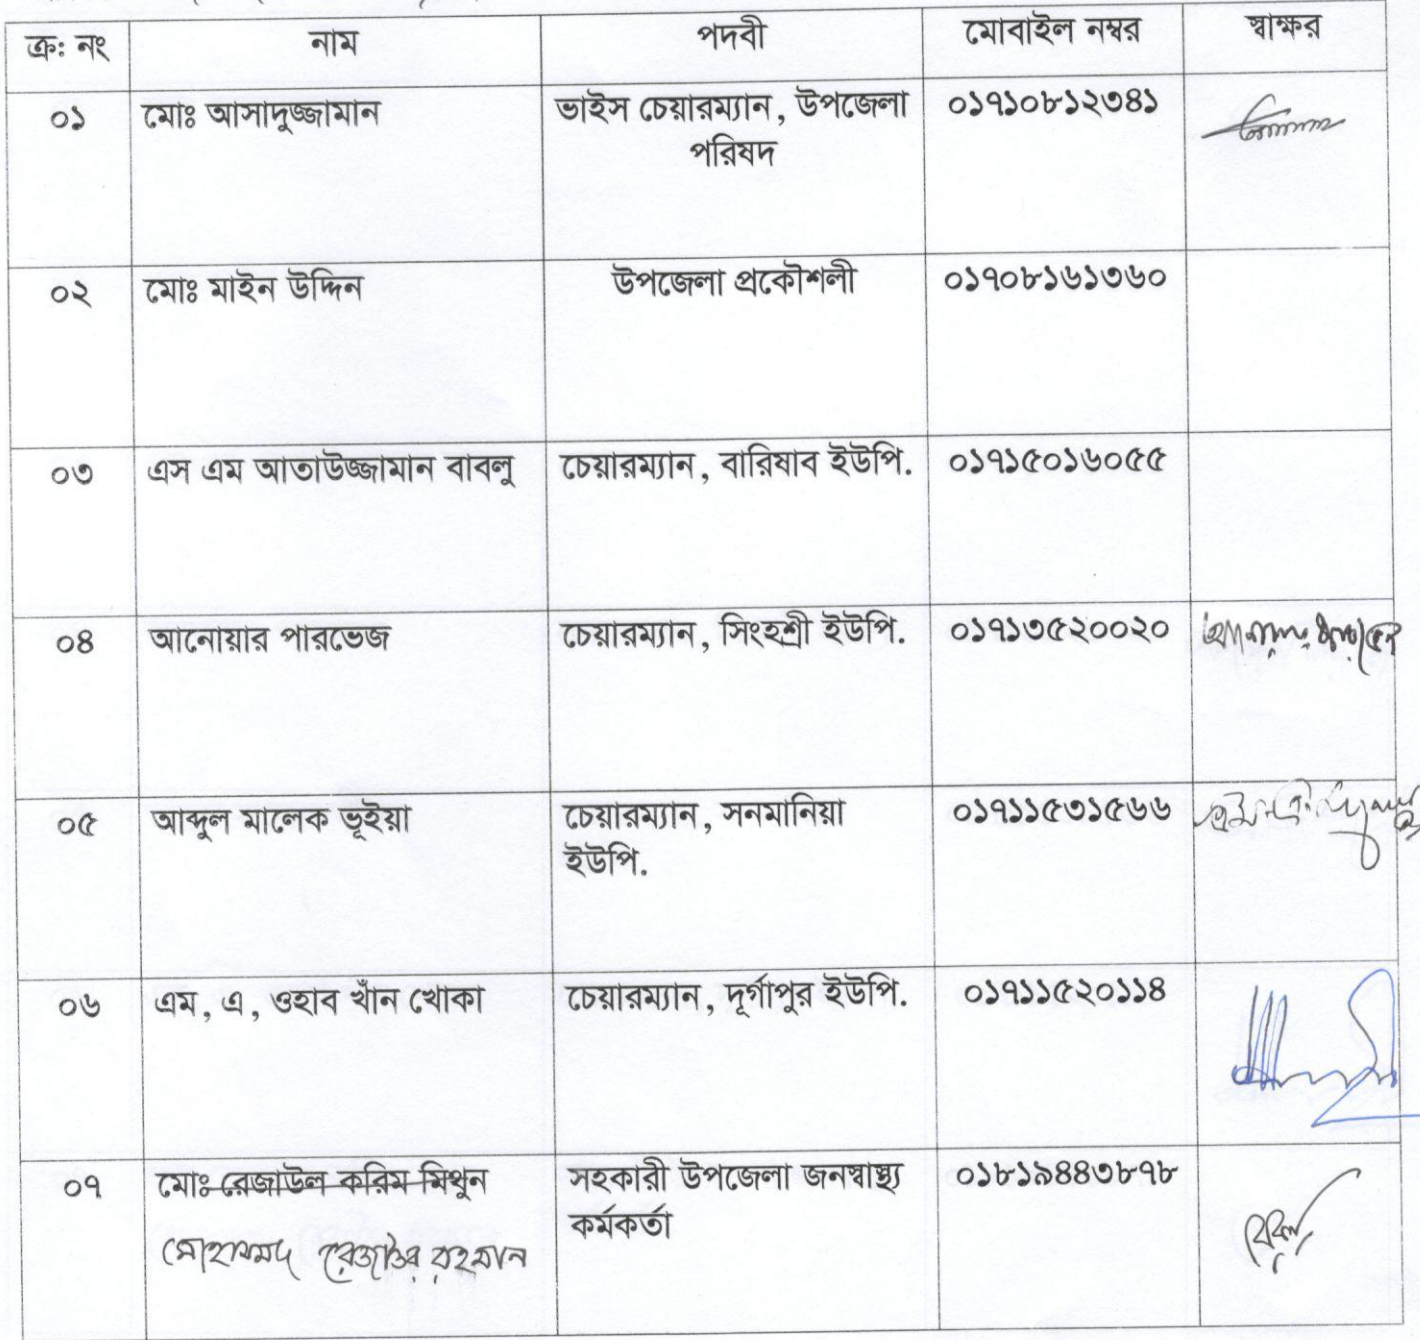 ক্র: নং নাম পদবী মোবাইল নম্বর স্বাক্ষর
০১ মোঃ আসাদুজ্জামান ভাইস চেয়ারম্যান, উপজেলা ০১৭১০৮১২৩৪১
পরিষদ
০২ মোঃ মাইন উদ্দিন উপজেলা প্রকৌশলী ০১৭০৮১৬১৩৬০
০৩ এস এম আতাউজ্জামান বাবলু চেয়ারম্যান, বারিষাব ইউপি. ০১৭১৫০১৬০৫৫
০৪ আনোয়ার পারভেজ চেয়ারম্যান, সিংহশ্রী ইউপি. ০১৭১৩৫২০০২০
০৫ আব্দুল মালেক ভূইয়া চেয়ারম্যান, সনমানিয়া ০১৭১১৫৩১৫৬৬
ইউপি.
০৬ এম, এ, ওহাব খাঁন খোকা চেয়ারম্যান, দূর্গাপুর ইউপি. ০১৭১১৫২০১১৪
০৭ মোঃ রেজাউল করিম মিথুন সহকারী উপজেলা জনস্বাস্থ্য ০১৮১৯৪৪৩৮৭৮
কর্মকর্তা
মোহাম্মদ রেজাউর রহমান